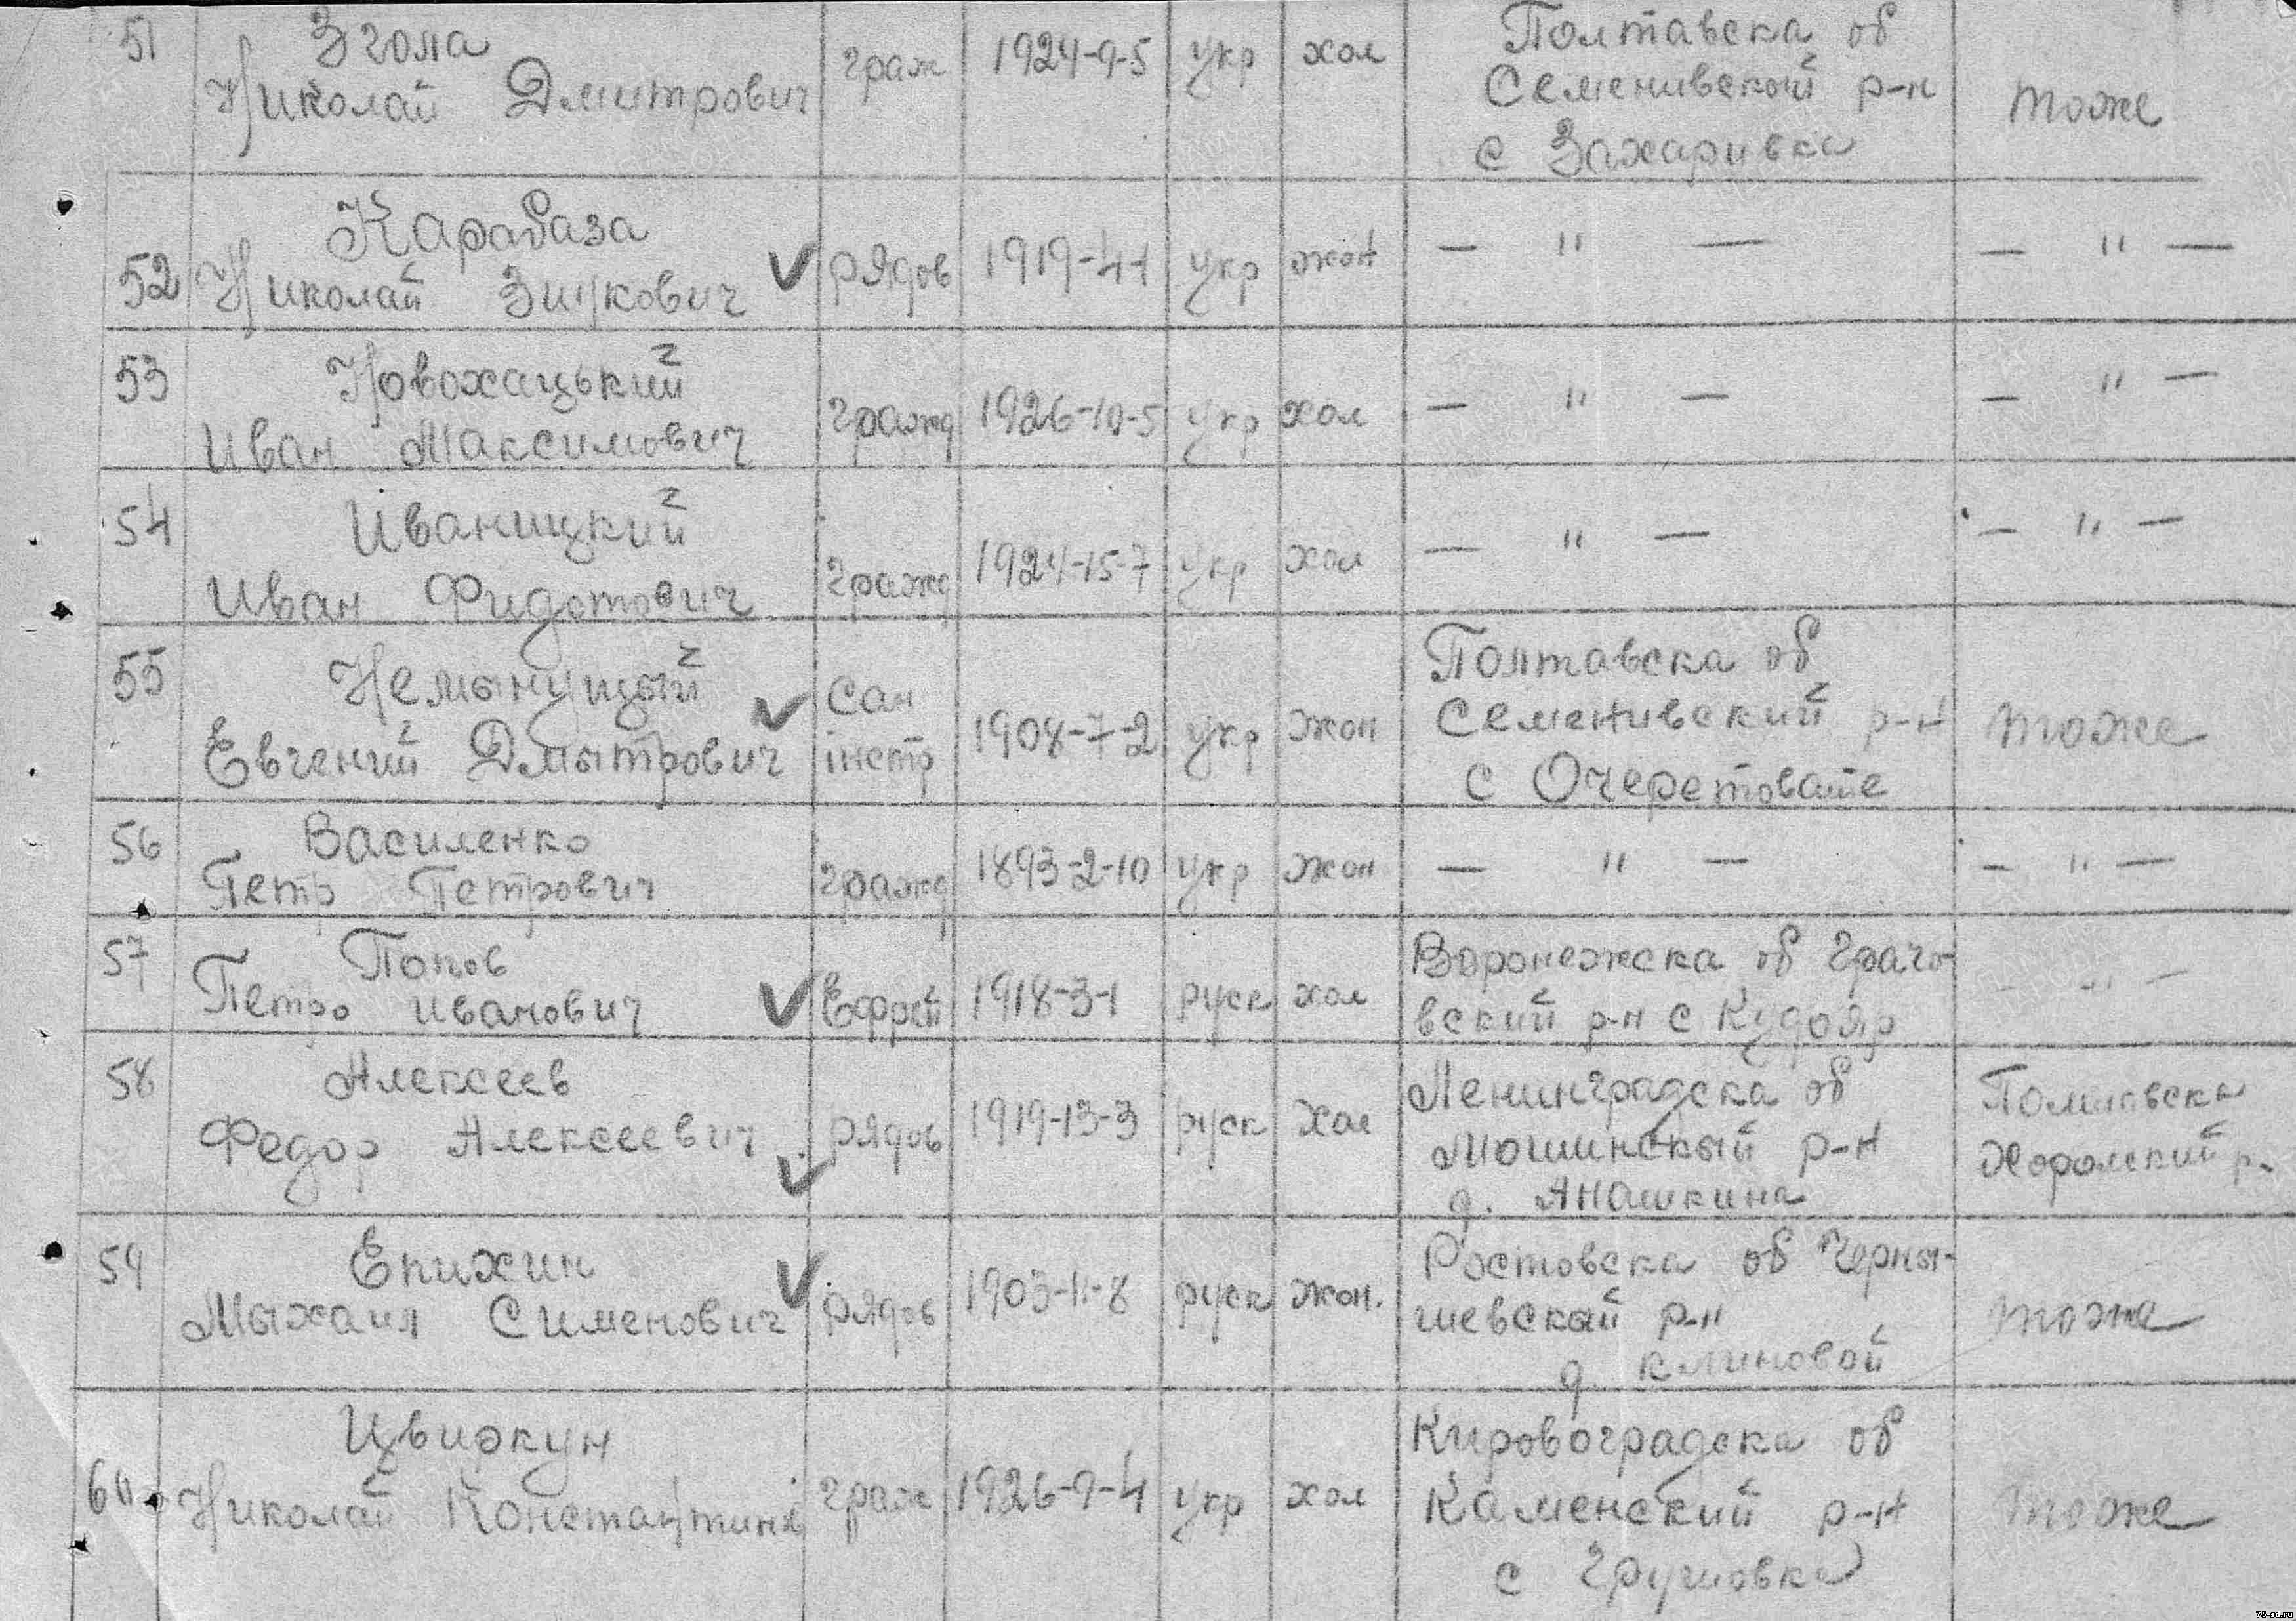 51 Згола
Николай Дмитрович граж 1924-9-5 укр хол Полтавска об
Семенивской р-н тоже
с Захаривка
Карабаза
52 Николай Зинкович рядов 1919-4-1 укр жон — " — — " —
53 Новохацький
Иван Максимович гражд 1926-10-5 укр хол — " — — " —
54 Иваницкий
Иван Фидотович гражд 1924-15-7 укр хол — " — — " —
55 Немынущый Сан Полтавска об
Евгений Дмытрович інстр 1908-7-2 укр жон Семенивский р-н тоже
с Очеретовате
56 Василенко
Петр Петрович гражд 1893-2-10 укр жон — " — — " —
57 Попов Воронежска об Грачо-
Петро Иванович Ефрей 1918-3-1 руск хол вский р-н с Кудояр - " —
58 Алексеев Ленинградска об
Федор Алексеевич рядов 1919-13-3 руск хол Мошинскый р-н Хоролский р-
д. Анашкина
59 Епихин Ростовска об Черны-
Мыхаил Сименович рядов 1903-11-8 руск жон. шевский р-н тоже
д. Климовой
Цвиркун Кировоградска об
60 Николай граж 1926-9-4 укр хол Каменский р-н тоже
с Грушовка
75-sd.ru